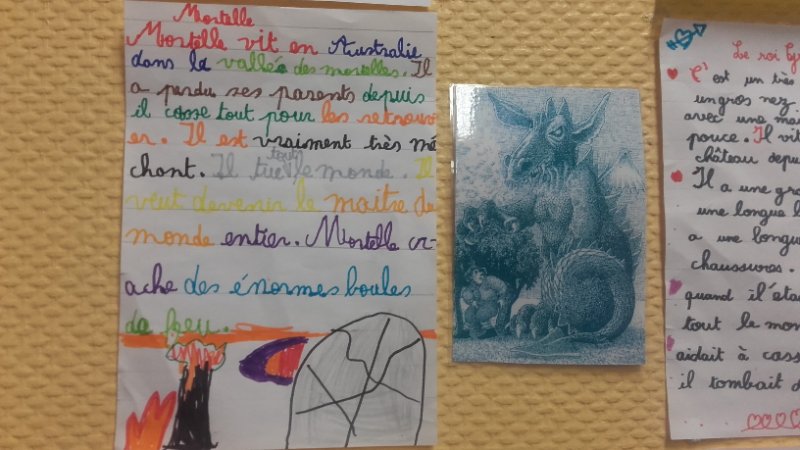 Mortelle
Mortelle vit en Australie
dans la vallée des mortelles. Il
a perdu ses parents depuis
il casse tout pour les retrouv
er. Il est vraiment très mé
chant. Il tue tout le monde. Il
veut devenir le maitre de
monde entier. Mortelle cr-
ache des énormes boules
de feu.
Le roi
C'est un très
un gros nez
avec une
pouce. Il vit
château depu
Il a une gra
une longue
a une longu
chaussures.
quand il éta
tout le mon
aidait à cass
il tombait d